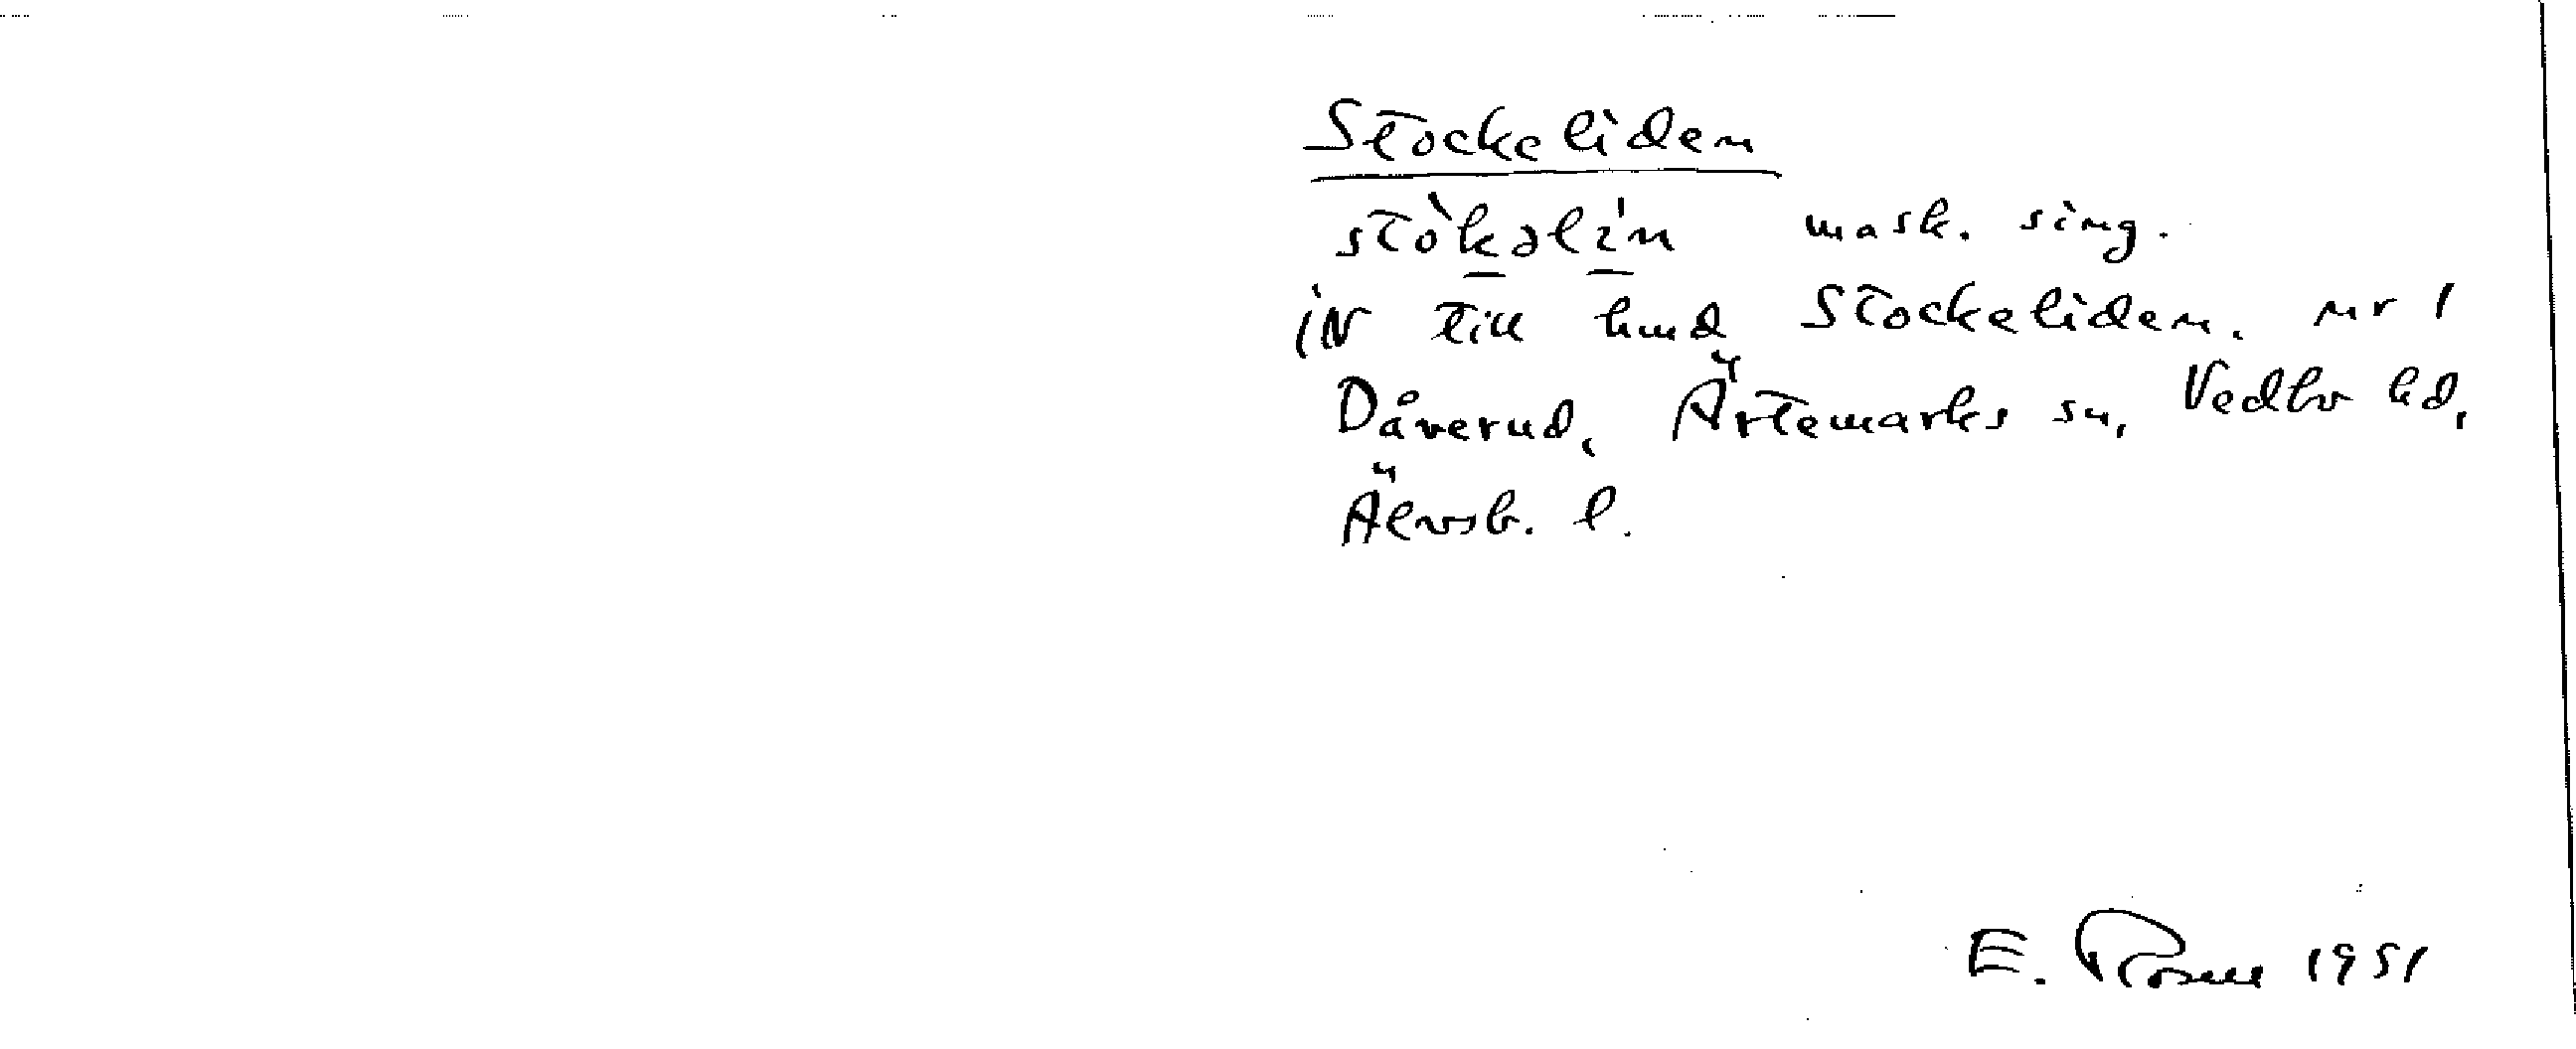 Stockeliden
stòkəlín mask. sing.
IN till hmd Stockeliden. nr 1
Dåverud, Ärtemarks sn, Vedbo hd,
Älvsb. l.
E. Rosell 1951